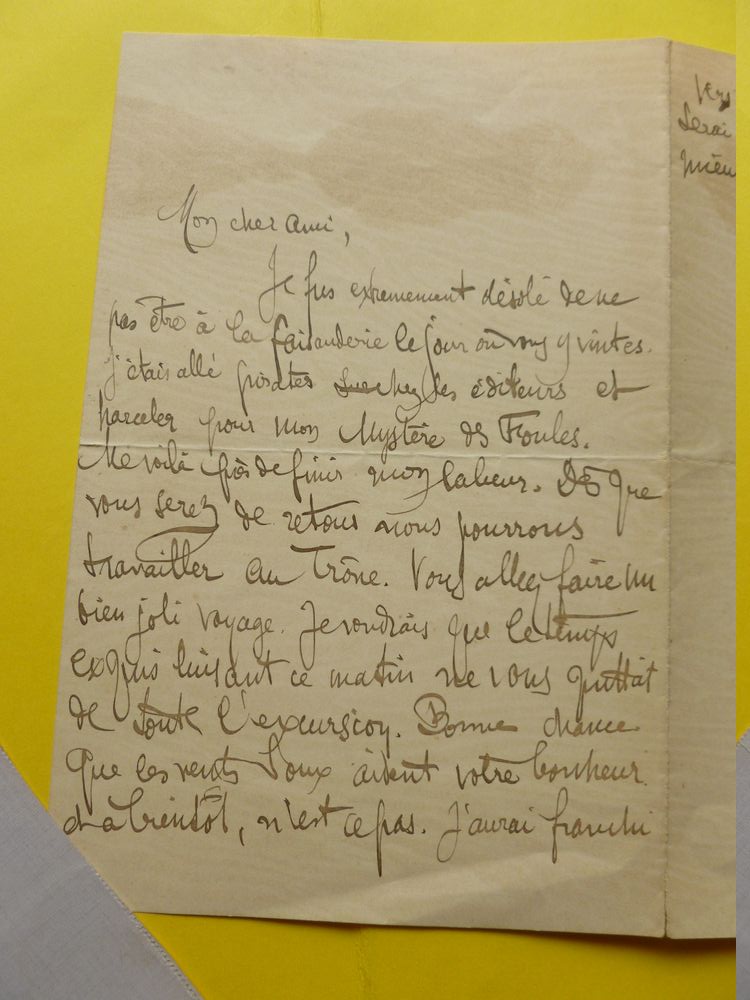 Mon cher ami,
Je fus extremement désolé de ne
pas être à la faisanderie le jour où vous y vintes.
j'étais allé chez des éditeurs et
harceler pour mon Mystère des Foules.
Me voilà près de finir mon labeur. Dès que
vous serez de retour nous pourrons
travailler au Trône. Vous allez faire un
bien joli voyage. Je voudrais que le temps
exquis luisant ce matin ne vous quittât
de toute l'excursion. Bonne chance
que les vents doux aident votre bonheur
et à bientôt, n'est ce pas. J'aurai franchi
vers
serai
mieu